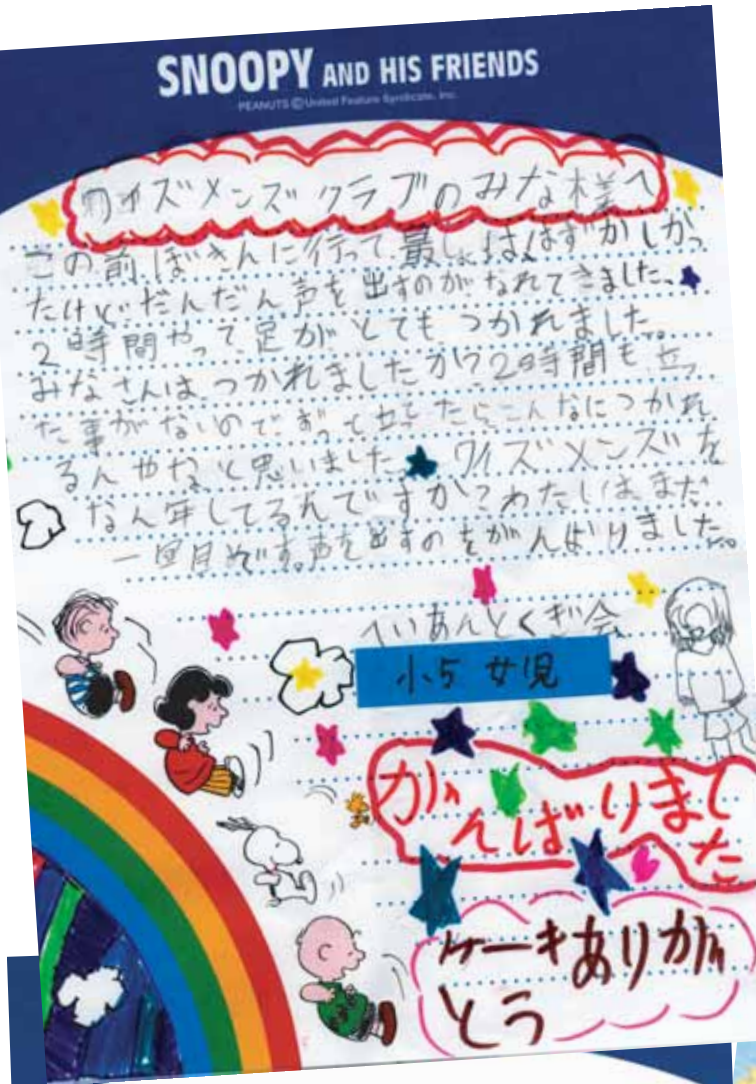 SNOOPY AND HIS FRIENDS
PEANUTS © United Feature Syndicate, Inc.
ワイズメンズクラブのみな様へ
この前ぼきんに行って最しょははずかしかっ
たけどだんだん声を出すのがなれてきました。
2時間やって足がとてもつかれました。
みなさんはつかれましたか?2時間も立っ
た事がないのでずっと立ってたらこんなにつかれ
るんやなと思いました ワイズメンズを
なん年してるんですか?わたしはまだ
一回目めです。声を出すのをがんばりました。
へいあんとくぎ会
小5 女児
がんばりまし
た
ケーキありが
とう